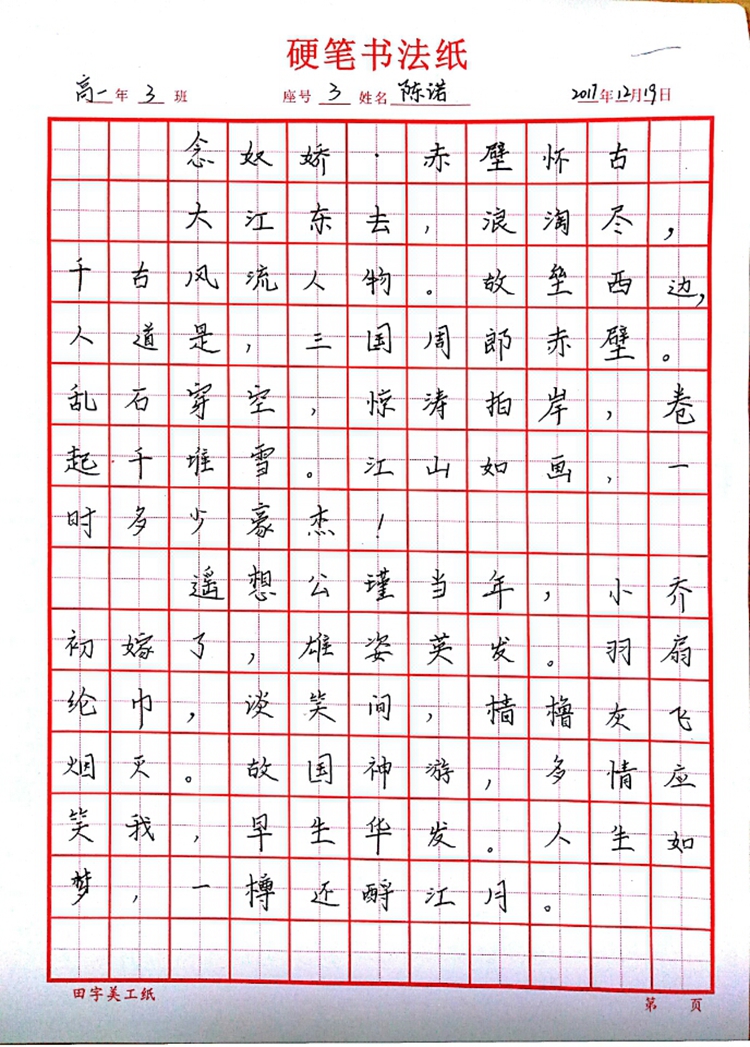 硬笔书法纸
高一年 3 班 座号 3 姓名 陈诺 2017年12月19日
念奴娇·赤壁怀古
大江东去，浪淘尽，
千古风流人物。故垒西边，
人道是，三国周郎赤壁。
乱石穿空，惊涛拍岸，卷
起千堆雪。江山如画，一
时多少豪杰！
遥想公瑾当年，小乔
初嫁了，雄姿英发。羽扇
纶巾，谈笑间，樯橹灰飞
烟灭。故国神游，多情应
笑我，早生华发。人生如
梦，一樽还酹江月。
田字美工纸 第 页